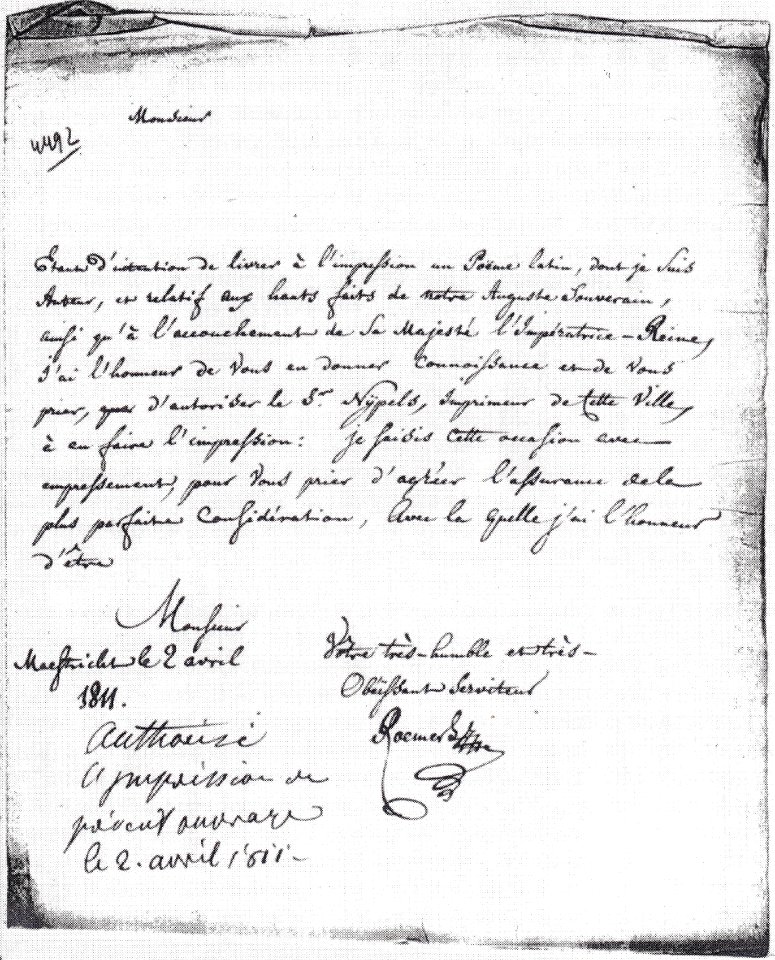 Monsieur
4492
Etant d'intention de livrer à l'impression un Poëme latin, dont je suis
Auteur, et relatif aux hauts faits de notre Auguste Souverain,
ainsi qu'à l'accouchement de Sa Majesté l'Impératrice-Reine,
j'ai l'honneur de Vous en donner Connaissance et de Vous
prier, d'autoriser le Sr Nÿpels, Imprimeur de Cette Ville,
à en faire l'impression: je saisis Cette occasion avec
empressement, pour Vous prier d'agréer l'assurance de la
plus parfaite Considération, Avec la quelle j'ai l'honneur
d'être
Monsieur
Maestricht le 2 avril
1811.
Votre très-humble et très-
Obéissant Serviteur
Roemers
Authorisé
l'impression du
ouvrage
le 2. avril 1811.-